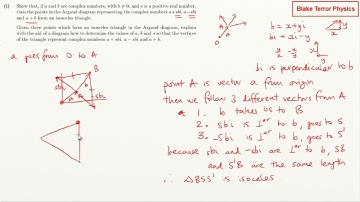 (i) Show that, if a and b are complex numbers, with b ≠ 0, and s is a positive real number,
then the points in the Argand diagram representing the complex numbers a + sbi, a − sbi
and a + b form an isosceles triangle.
Given three points which form an isosceles triangle in the Argand diagram, explain
with the aid of a diagram how to determine the values of a, b and s so that the vertices
of the triangle represent complex numbers a + sbi, a − sbi and a + b.
Blake Terror Physics
b = x+yi
bi = xi-y
bi is perpendicular to b
a goes from O to A
B
sbi
b
A
-sbi
a
point A is vector a from origin
then we follow 3 different vectors from A
1. b takes us to B
2. sbi is ⊥ar to b, goes to S
3. -sbi is ⊥ar to b, goes to S'
because sbi and -sbi are ⊥ar to b, SB
and S'B are the same length
∴ △BSS' is isoceles.